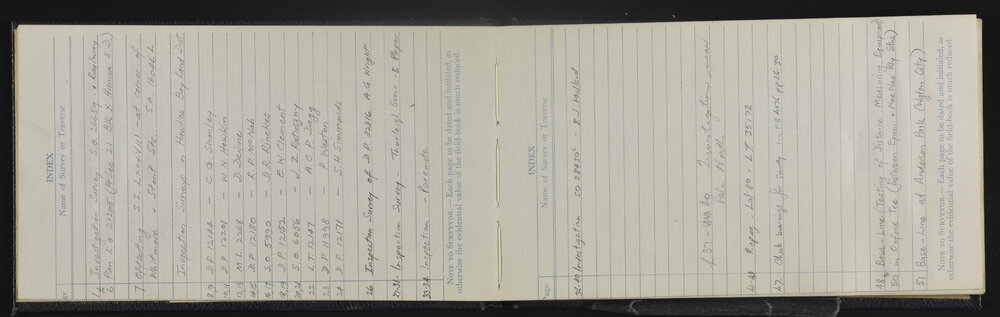 INDEX
Page
Name of Survey or Traverse
1-4 Investigation Survey S.O. 24659. + Railway
6 Plan S.O. 21205 (Pt Sec 21 Blk X Heretaunga S.D.)
7 Offsetting S.S. LXXXVIII - at corner of
Whitmore & Stout Sts. S.O. 16086 L
Inspection Surveys in Hawkes Bay Land Dist.
8,9 D.P. 12144 - C.G. Shanley
10,11 D.P. 12201 - W.N. Hawkin
12,13 M.L. 2268 - D. Downer
14,15 D.P. 12180 - R.P.
16-17 S.O. 5990 - D.R. Runciles
18,19 D.P. 12152 - B.W. Clement
20,21 S.O. 6056 - J.Z.
22 L.T. 12147 - A.C.P. Dagg
23 D.P. 11998 - P. Weston
24 D.P. 12171 - S.H. Simmonds
26 Inspection Survey of D.P. 32316 A.G. Wright
27-31 Inspection Survey - Thurleigh Grove E Player
32-34 Inspection - Paremata
NOTE TO SURVEYOR.—Each page to be dated and initialed, as
otherwise the evidential value of the field-book is much reduced.
INDEX
Page
Name of Survey or Traverse
36-40 Investigation SO 28430 E.J. Mallard
f 37 - Investigation
41-43 Repeg. Lot 80 - L T 35172
47 Check bearings for survey in F.B. 6076 pp 26-30
48 to Base-Line (Testing of Distance Measuring Equipment)
50 on Oxford Tce (between Epuni & Naenae Rly Stns)
51 Base-Line at Anderson Park (Wgton City)
NOTE TO SURVEYOR.—Each page to be dated and initialed, as
otherwise the evidential value of the field-book is much reduced.